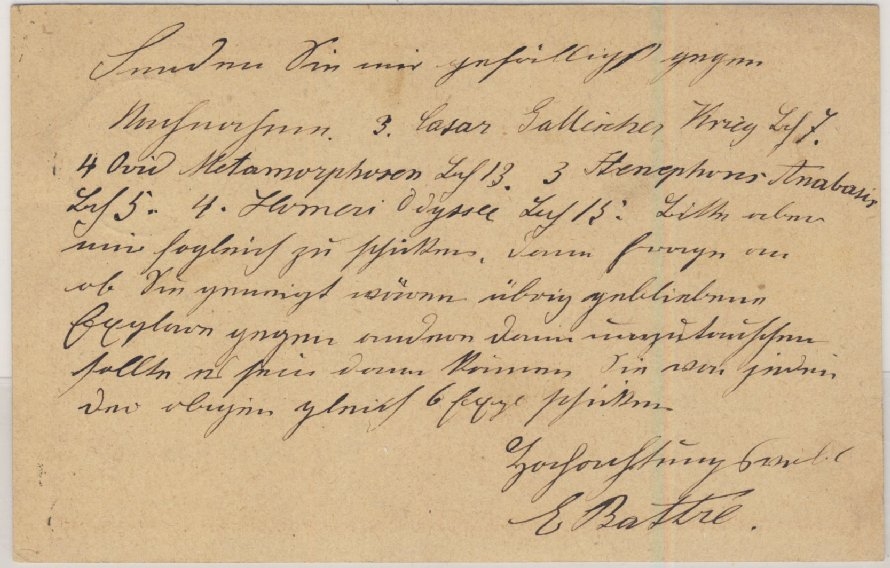 Senden Sie mir gefälligst gegen
Nachnahme. 3. Casar Gallischer Krieg Lif 7.
4 Ovid Metamorphosen Lif 13. 3 Xenephons Anabasis
Lif 5. 4. Homeri Odyssee Lif 15. Bitte aber
mir sogleich zu schicken. Dann frage an
ob Sie geneigt wären übrig gebliebene
Explare gegen andere dann umzutauschen
sollte es sein dann können Sie von jedem
der obigen gleich 6 Expl schicken
Hochachtungsvoll
E Battre.